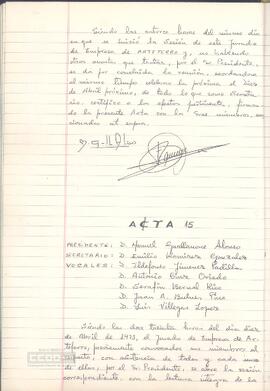 Siendo las catorce horas del mismo día
en que se inició la sesión de este Jurado
de Empresa de ARTIFERRO y, no habiendo
otros asuntos que tratar, por el Sr. Presidente,
se da por concluida la reunión, acordándose
al mismo tiempo celebrar la próxima el diez
de Abril próximo, de todo lo que como Secreta
rio, certifico a los efectos pertinente, firman
do la presente Acta con los Sres. miembros,
ut supra.
ACTA 15
PRESIDENTE: D. Manuel Alonso
SECRETARIO: D. Emilio Ramírez González
VOCALES: D. Ildefonso Jimenez Padilla
D. Antonio Oviedo
D. Serafín Bernal Rico
D. Juan A.
D. Luis Villegas Lopez
Siendo las doce treinta horas del día diez
de Abril de 1973, el Jurado de Empresa de Ar
tiferro, previamente convocados sus miembros al
con asistencia de todos y cada uno
de ellos, por el Sr. Presidente, se abre la sesión
correspondiente, con la lectura íntegra de la